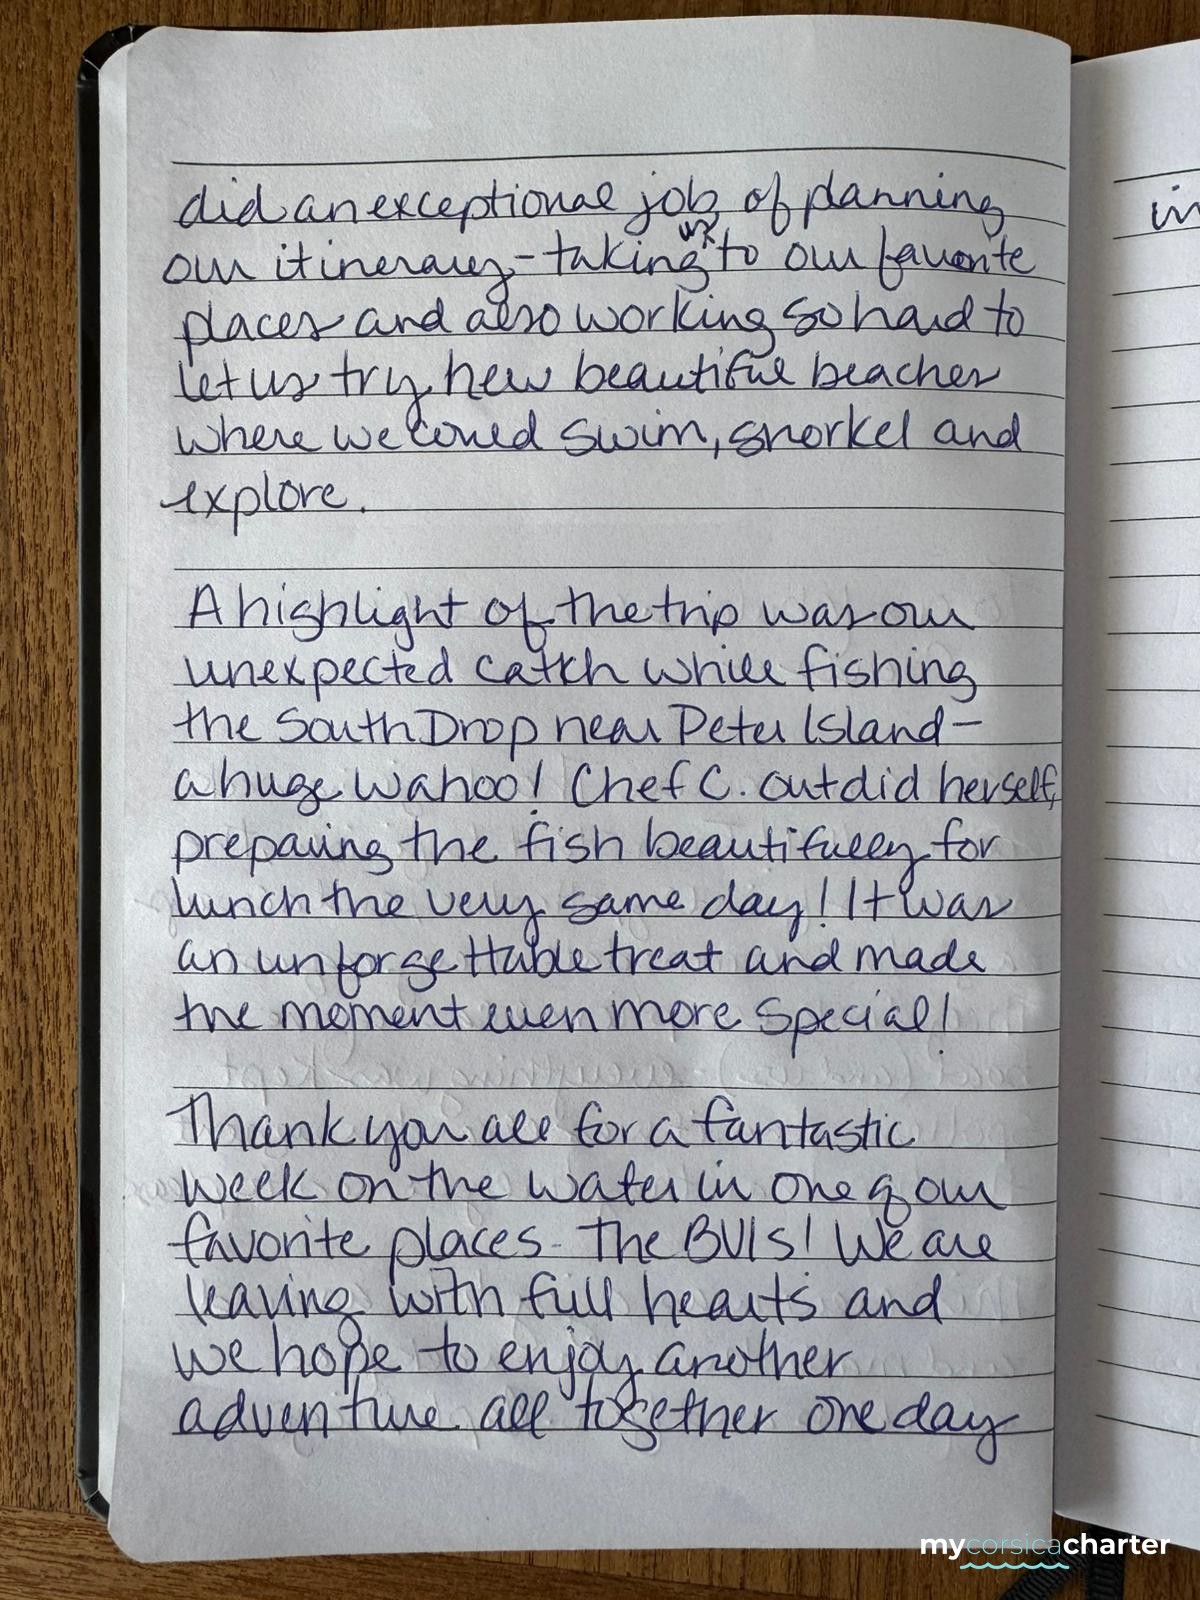 did an exceptional job of planning
our itinerary - taking us to our favorite
places and also working so hard to
let us try new beautiful beaches
where we could swim, snorkel and
explore.
A highlight of the trip was our
unexpected catch while fishing
the South Drop near Peter Island -
a huge Wahoo! Chef C. outdid herself,
preparing the fish beautifully for
lunch the very same day! It was
an unforgettable treat and made
the moment even more special!
Thank you all for a fantastic
week on the water in one of our
favorite places - The BVIs! We are
leaving with full hearts and
we hope to enjoy another
adventure all together one day
mycorsicacharter